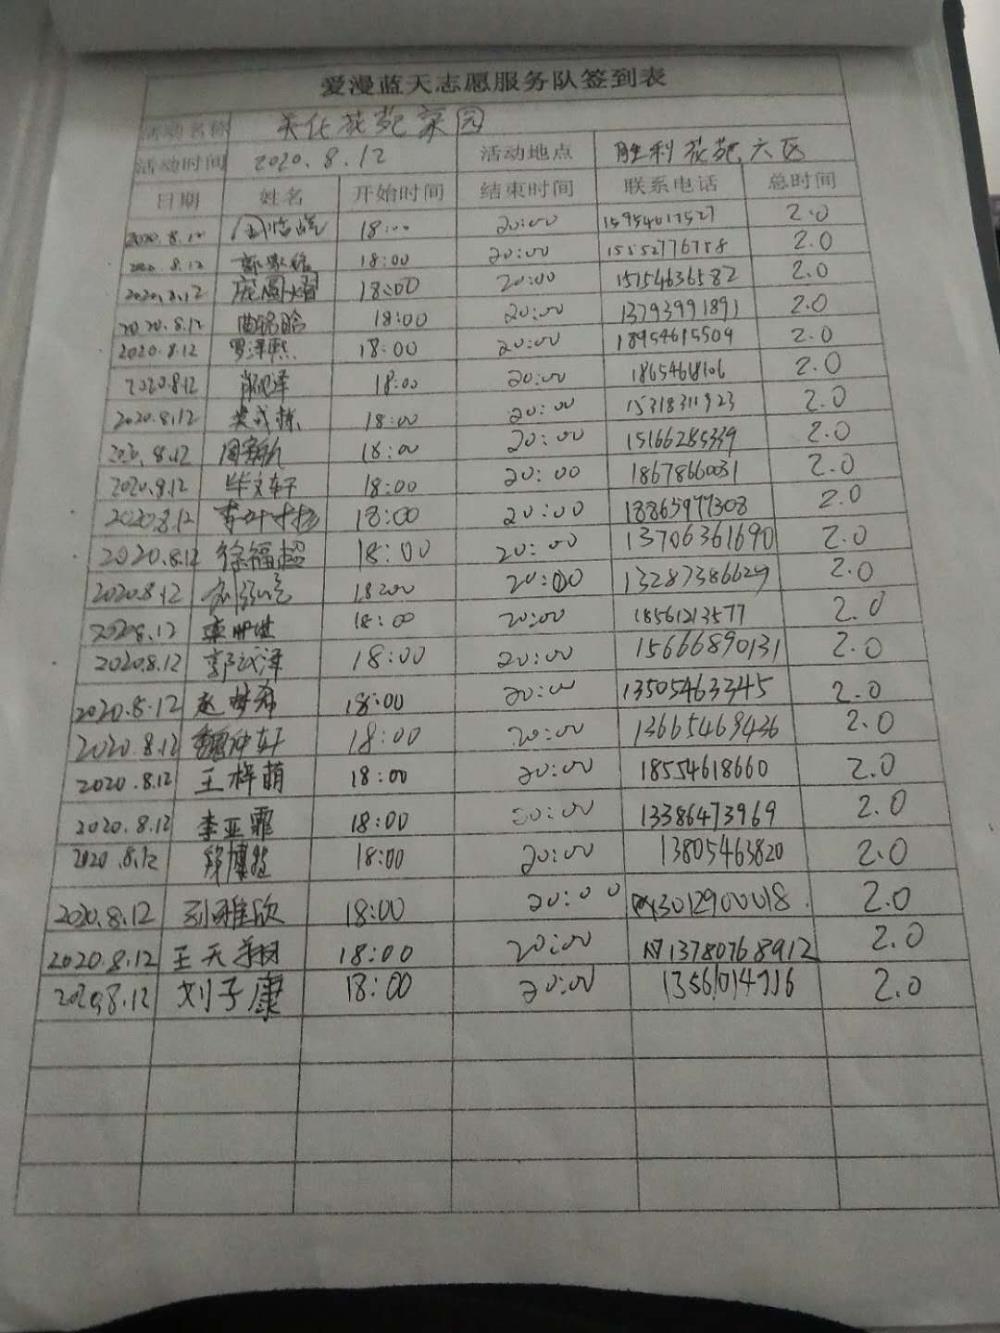 爱漫蓝天志愿服务队签到表
活动名称 美化花苑菜园
活动时间 2020.8.12 活动地点 胜利花苑六区
日期 姓名 开始时间 结束时间 联系电话 总时间
2020.8.12 18:00 20:00 15954617527 2.0
2020.8.12 18:00 20:00 15552776758 2.0
2020.8.12 18:00 20:00 15154636582 2.0
2020.8.12 18:00 20:00 13793991891 2.0
2020.8.12 罗泽熙 18:00 20:00 18954615509 2.0
2020.8.12 18:00 20:00 1865468106 2.0
2020.8.12 18:00 20:00 15318311923 2.0
2020.8.12 18:00 20:00 15166285339 2.0
2020.8.12 毕文轩 18:00 20:00 1867866031 2.0
2020.8.12 18:00 20:00 18865977308 2.0
2020.8.12 徐福超 18:00 20:00 13706361690 2.0
2020.8.12 18:00 20:00 13287386629 2.0
2020.8.12 18:00 20:00 18561213577 2.0
2020.8.12 18:00 20:00 15666890131 2.0
2020.8.12 赵梦希 18:00 20:00 13505463345 2.0
2020.8.12 魏仲轩 18:00 20:00 13665469436 2.0
2020.8.12 王梓萌 18:00 20:00 18554618660 2.0
2020.8.12 李亚霏 18:00 20:00 13386473969 2.0
2020.8.12 18:00 20:00 13805463820 2.0
2020.8.12 孙雅欣 18:00 20:00 13012900018 2.0
2020.8.12 18:00 20:00 13780768912 2.0
2020.8.12 刘子康 18:00 20:00 13561014716 2.0